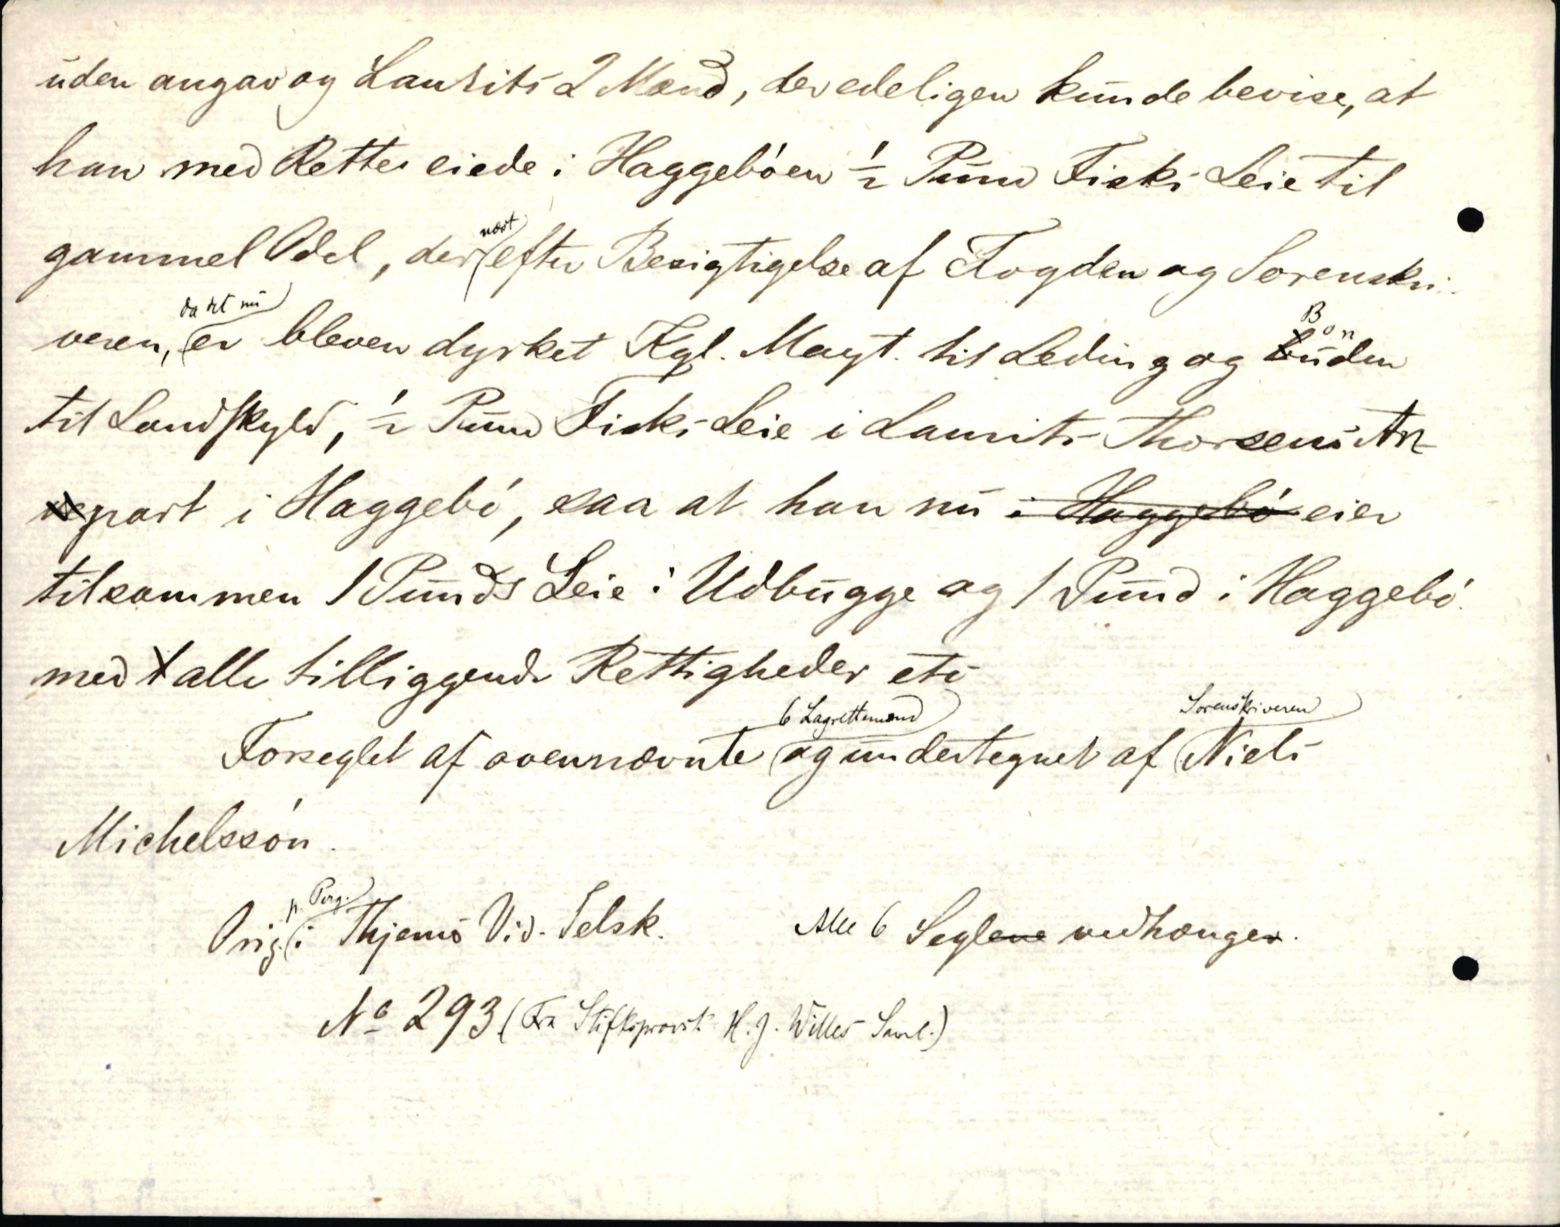 uden angav og Laurits 2 Mænd, der edeligen kunde bevise, at
han med Rette eiede i Haggebøen ½ Pund Fisks Leie til
gammel Odel, der næst efter Besigtigelse af Fogden og Sorenskri-
veren, da det nu er bleven dyrket Kgl. Mayt. til Leding og Bonden
til Landskyld, ½ Pund Fisks Leie i Laurits Thorsens An-
part i Haggebø, saa at han nu i Haggebø eier
tilsammen 1 Punds Leie i Udbugge og 1 Pund i Haggebø
med alle tilliggende Rettigheder etc
Forseglet af ovennævnte 6 Lagrettemænd og undertegnet af Sorenskriveren Niels
Michelssøn.
Orig. p. Perg. i Thjems Vid. Selsk. Alle 6 Segl vedhænge.
No 293 (Fra Stiftsprovst H. J. Willes Saml.)